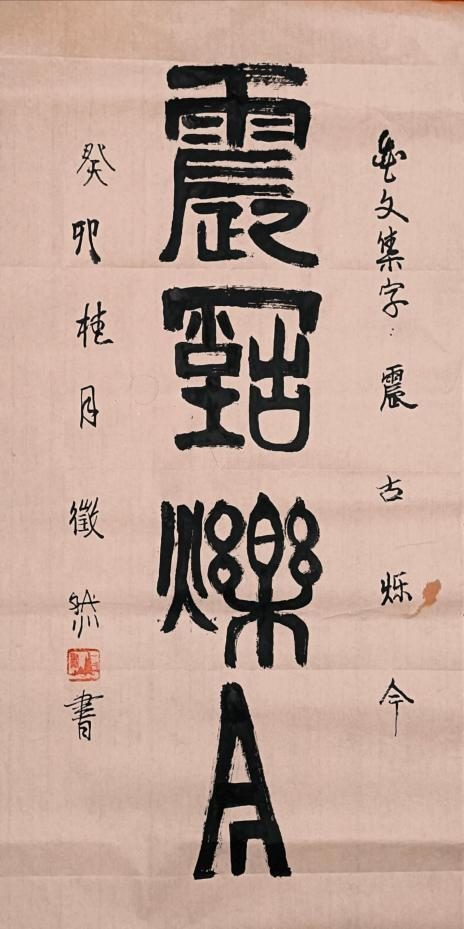 文集字：震古烁今
震古爍今
癸卯桂月徵然書